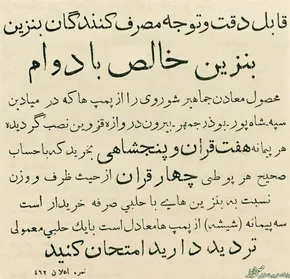 قابل دقت و توجه مصرف کنندگان بنزین
بنزین خالص با دوام
محصول معادن جماهیر شوروی را از پمپ ها که در میادین
سپه . شاه پور . بوذرجمهر . بیرون دروازه قزوین نصب گردیده
هر پیمانه هفت قران و پنجشاهی بخرید که با حساب
صحیح هر پوطی چهار قران از حیث ظرف و وزن
نسبت به بنزین هایی با حلبی صرفه خریدار است
سه پیمانه (شیشه) از پمپ ها معادل است با یك حلبی معمولی
تردید دارید امتحان کنید
نمره اعلان ۴۶۲